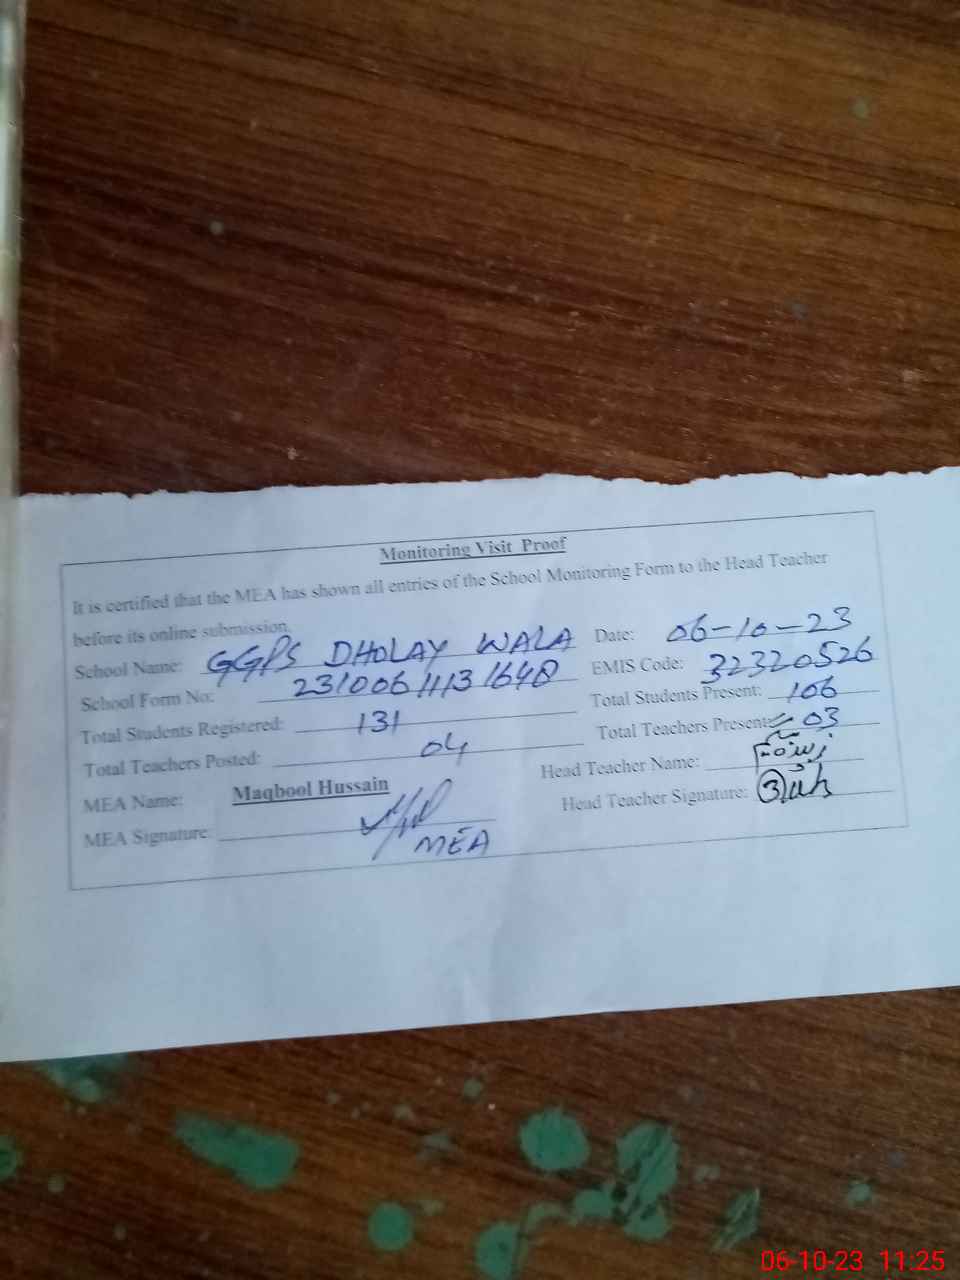 Monitoring Visit Proof
It is certified that the MEA has shown all entries of the School Monitoring Form to the Head Teacher
before its online submission.
School Name: GGPS DHOLAY WALA Date: 06-10-23
School Form No: 2310061113 1648 EMIS Code: 32320526
Total Students Registered: 131 Total Students Present: 106
Total Teachers Posted: 04 Total Teachers Present: 03
MEA Name: Maqbool Hussain Head Teacher Name:
MEA Signature: MEA Head Teacher Signature:
06-10-23 11:25